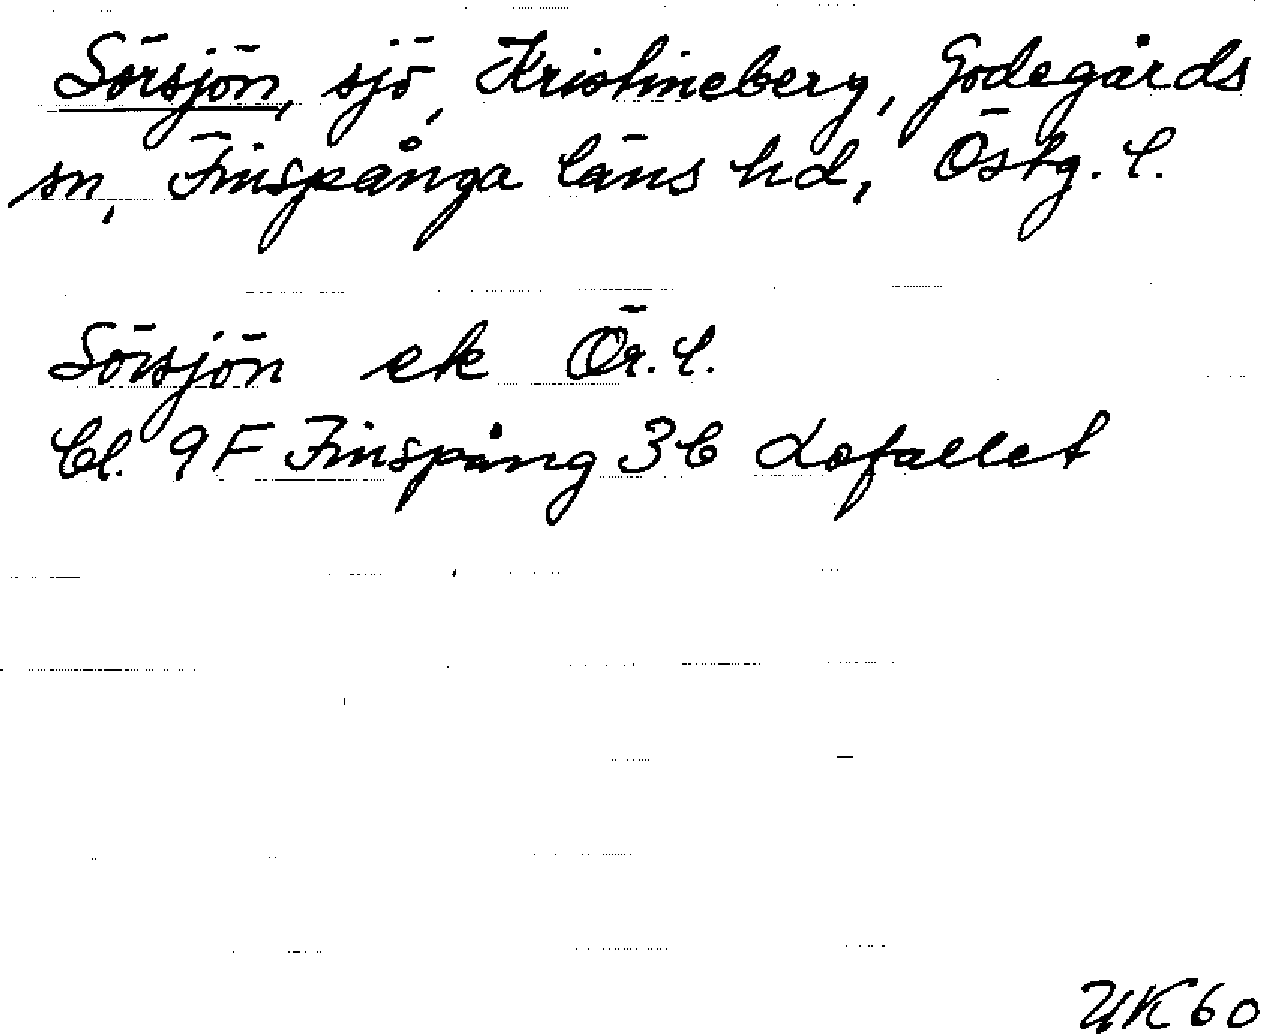 Sörsjön, sjö, Kristineberg, Godegårds
sn, Finspånga läns hd, Östg. l.
Sörsjön ek Ör. l.
Bl. 9F Finspång 3b Lofallet
UK 60